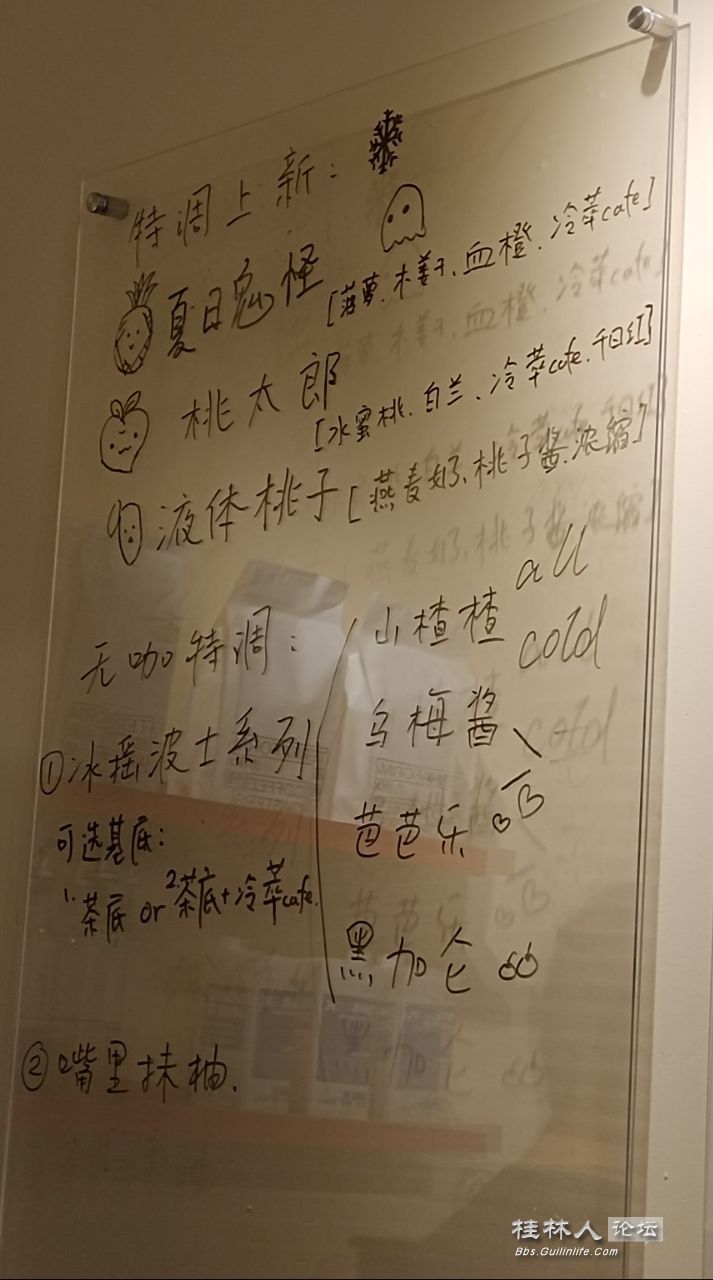 特调上新:
夏日鬼怪 [菠萝、木姜子、血橙、冷萃cafe]
桃太郎 [水蜜桃、白兰、冷萃cafe、千日红]
液体桃子 [燕麦奶、桃子酱、浓缩]
无咖特调:
①冰摇波士系列
可选基底:
1.茶底 or 2.茶底+冷萃cafe.
山楂楂
乌梅酱
芭芭乐
黑加仑
all
cold
②嘴里抹柚.
桂林人论坛
Bbs.Guilinlife.Com